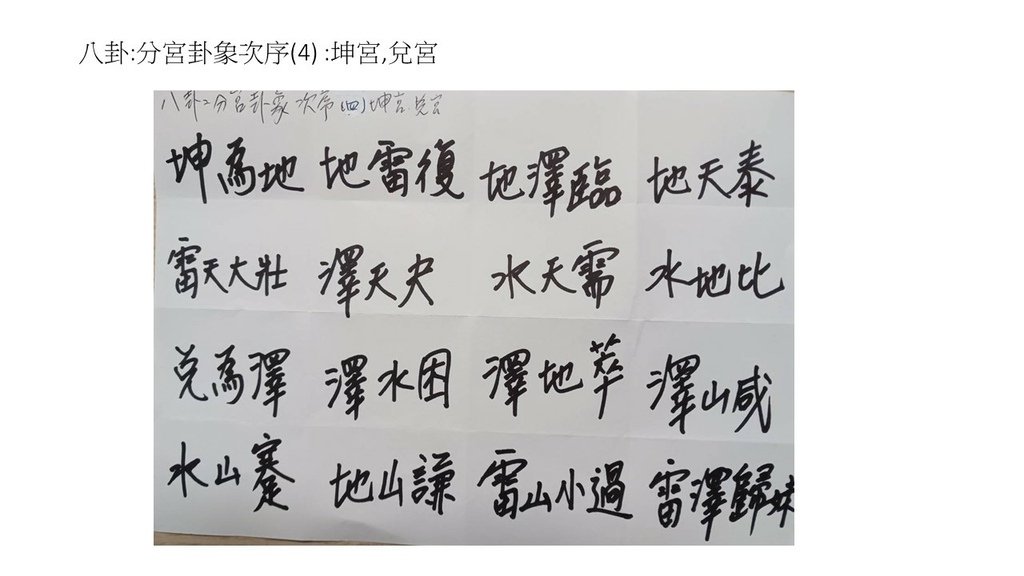 八卦:分宮卦象次序(4) :坤宮,兌宮
八卦:分宮卦象次序(四)坤宮.兌宮
坤為地 地雷復 地澤臨 地天泰
雷天大壯 澤天夬 水天需 水地比
兌為澤 澤水困 澤地萃 澤山咸
水山蹇 地山謙 雷山小過 雷澤歸妹